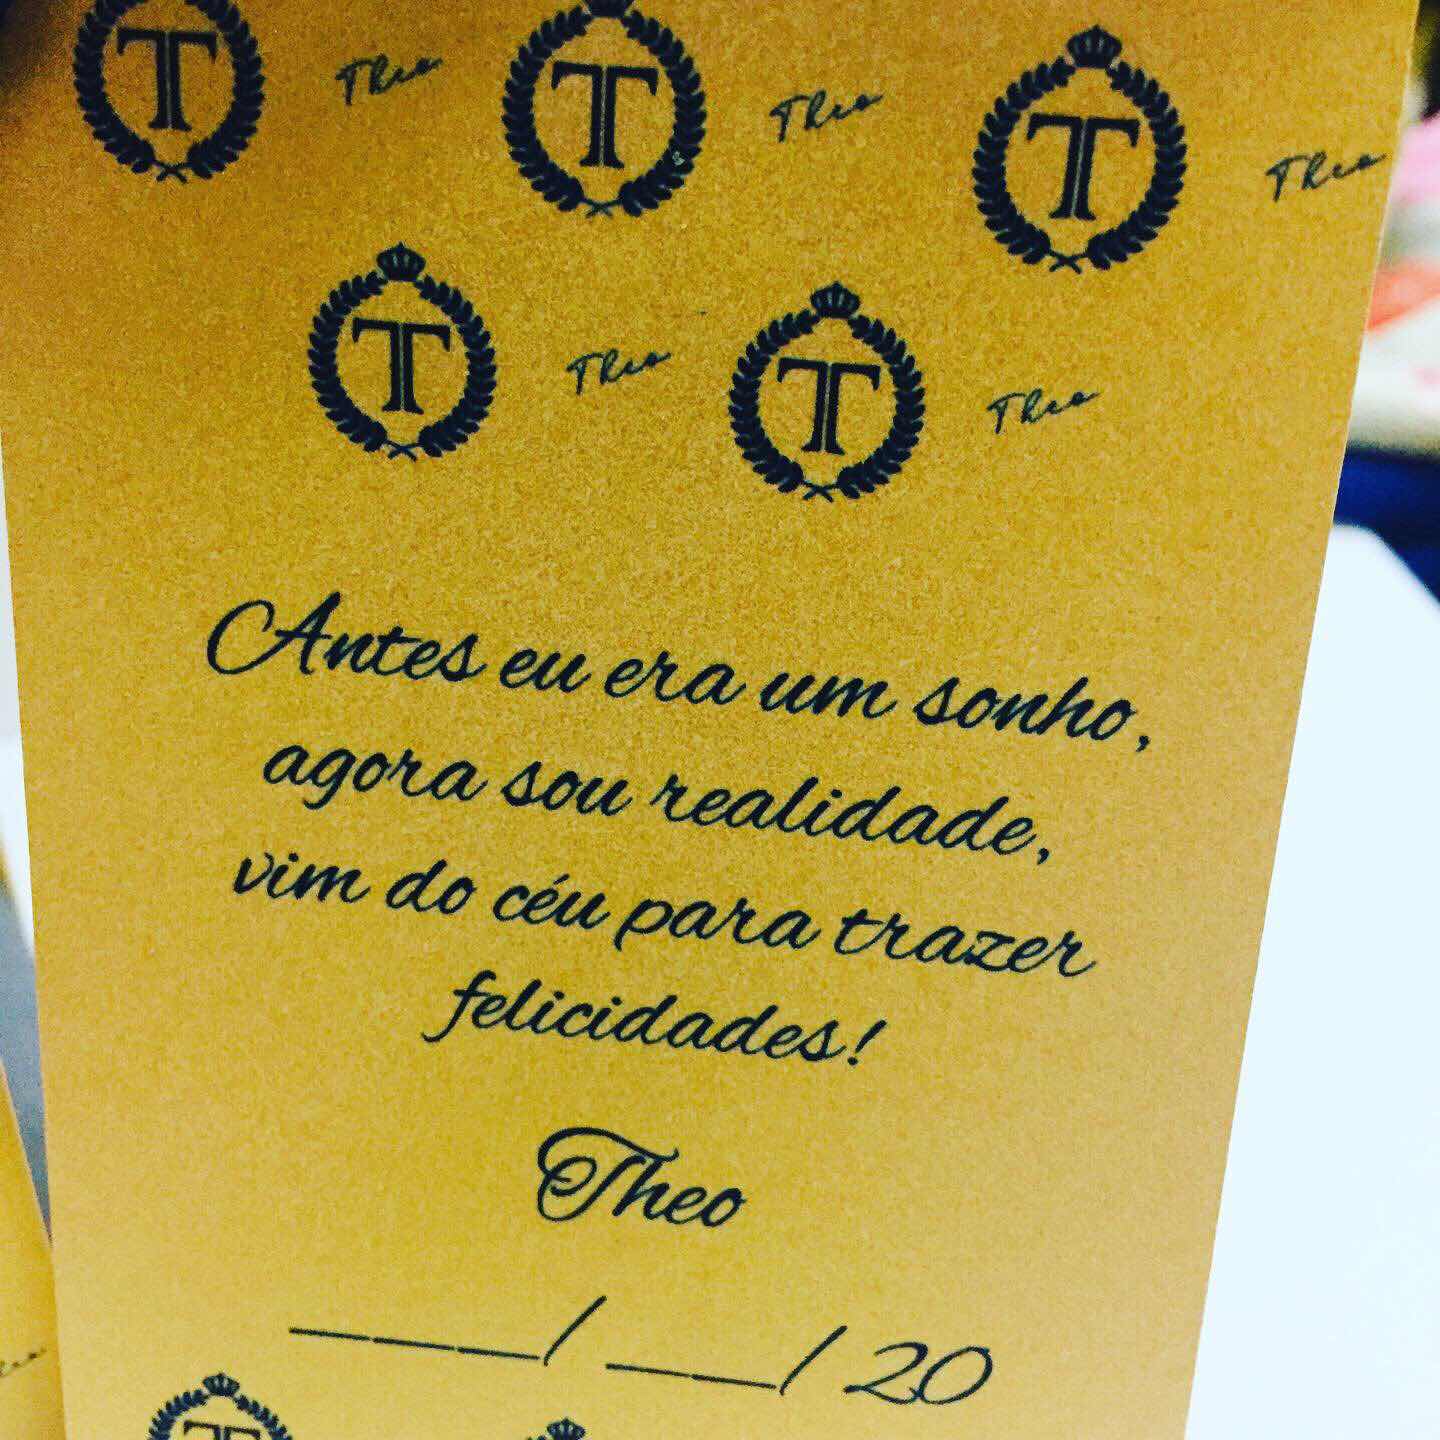 T Theo T Theo T Theo
T Theo T Theo
Antes eu era um sonho,
agora sou realidade,
vim do céu para trazer
felicidades!
Theo
____/ ___/ 20
T